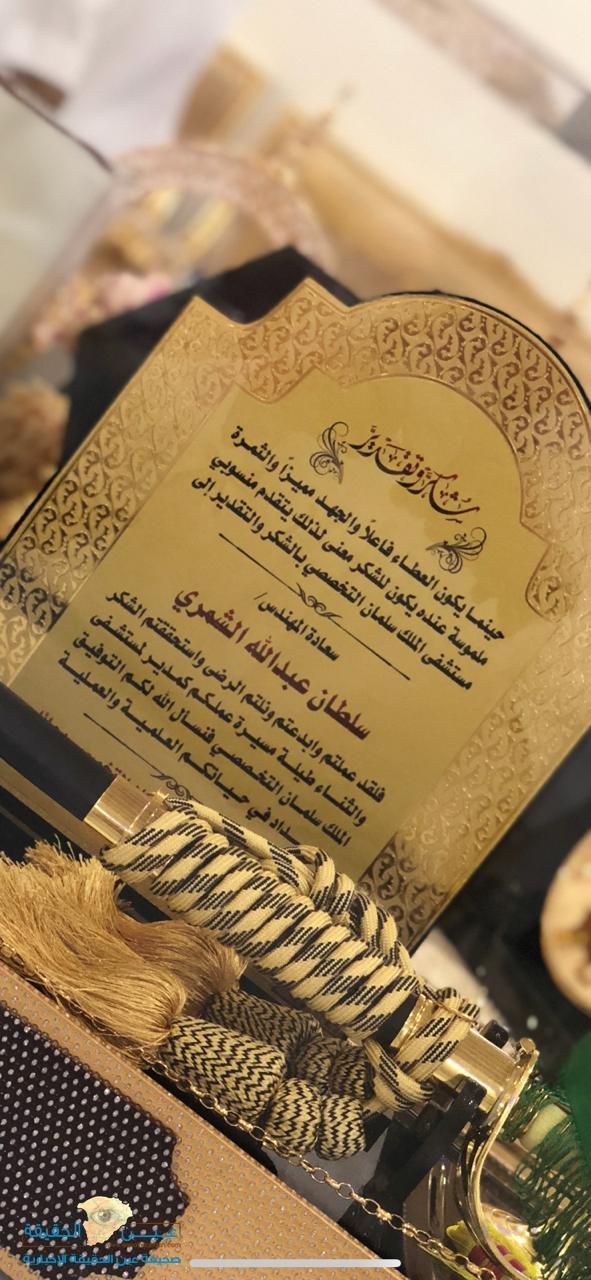 شكر وتقدير
حينما يكون العطاء فاعلاً والجهد مميزاً والثمرة
ملموسة عنده يكون للشكر معنى لذلك يتقدم منسوبي
مستشفى الملك سلمان التخصصي بالشكر والتقدير إلى
سعادة المهندس/
سلطان عبدالله الشمري
فلقد عملتم وابدعتم ونلتم الرضى واستحققتم الشكر
والثناء طيلة مسيرة عملكم كمدير لمستشفى
الملك سلمان التخصصي فنسال الله لكم التوفيق
في حياتكم العلمية والعملية
عين الحقيقة
صحيفة عين الحقيقة الإخبارية